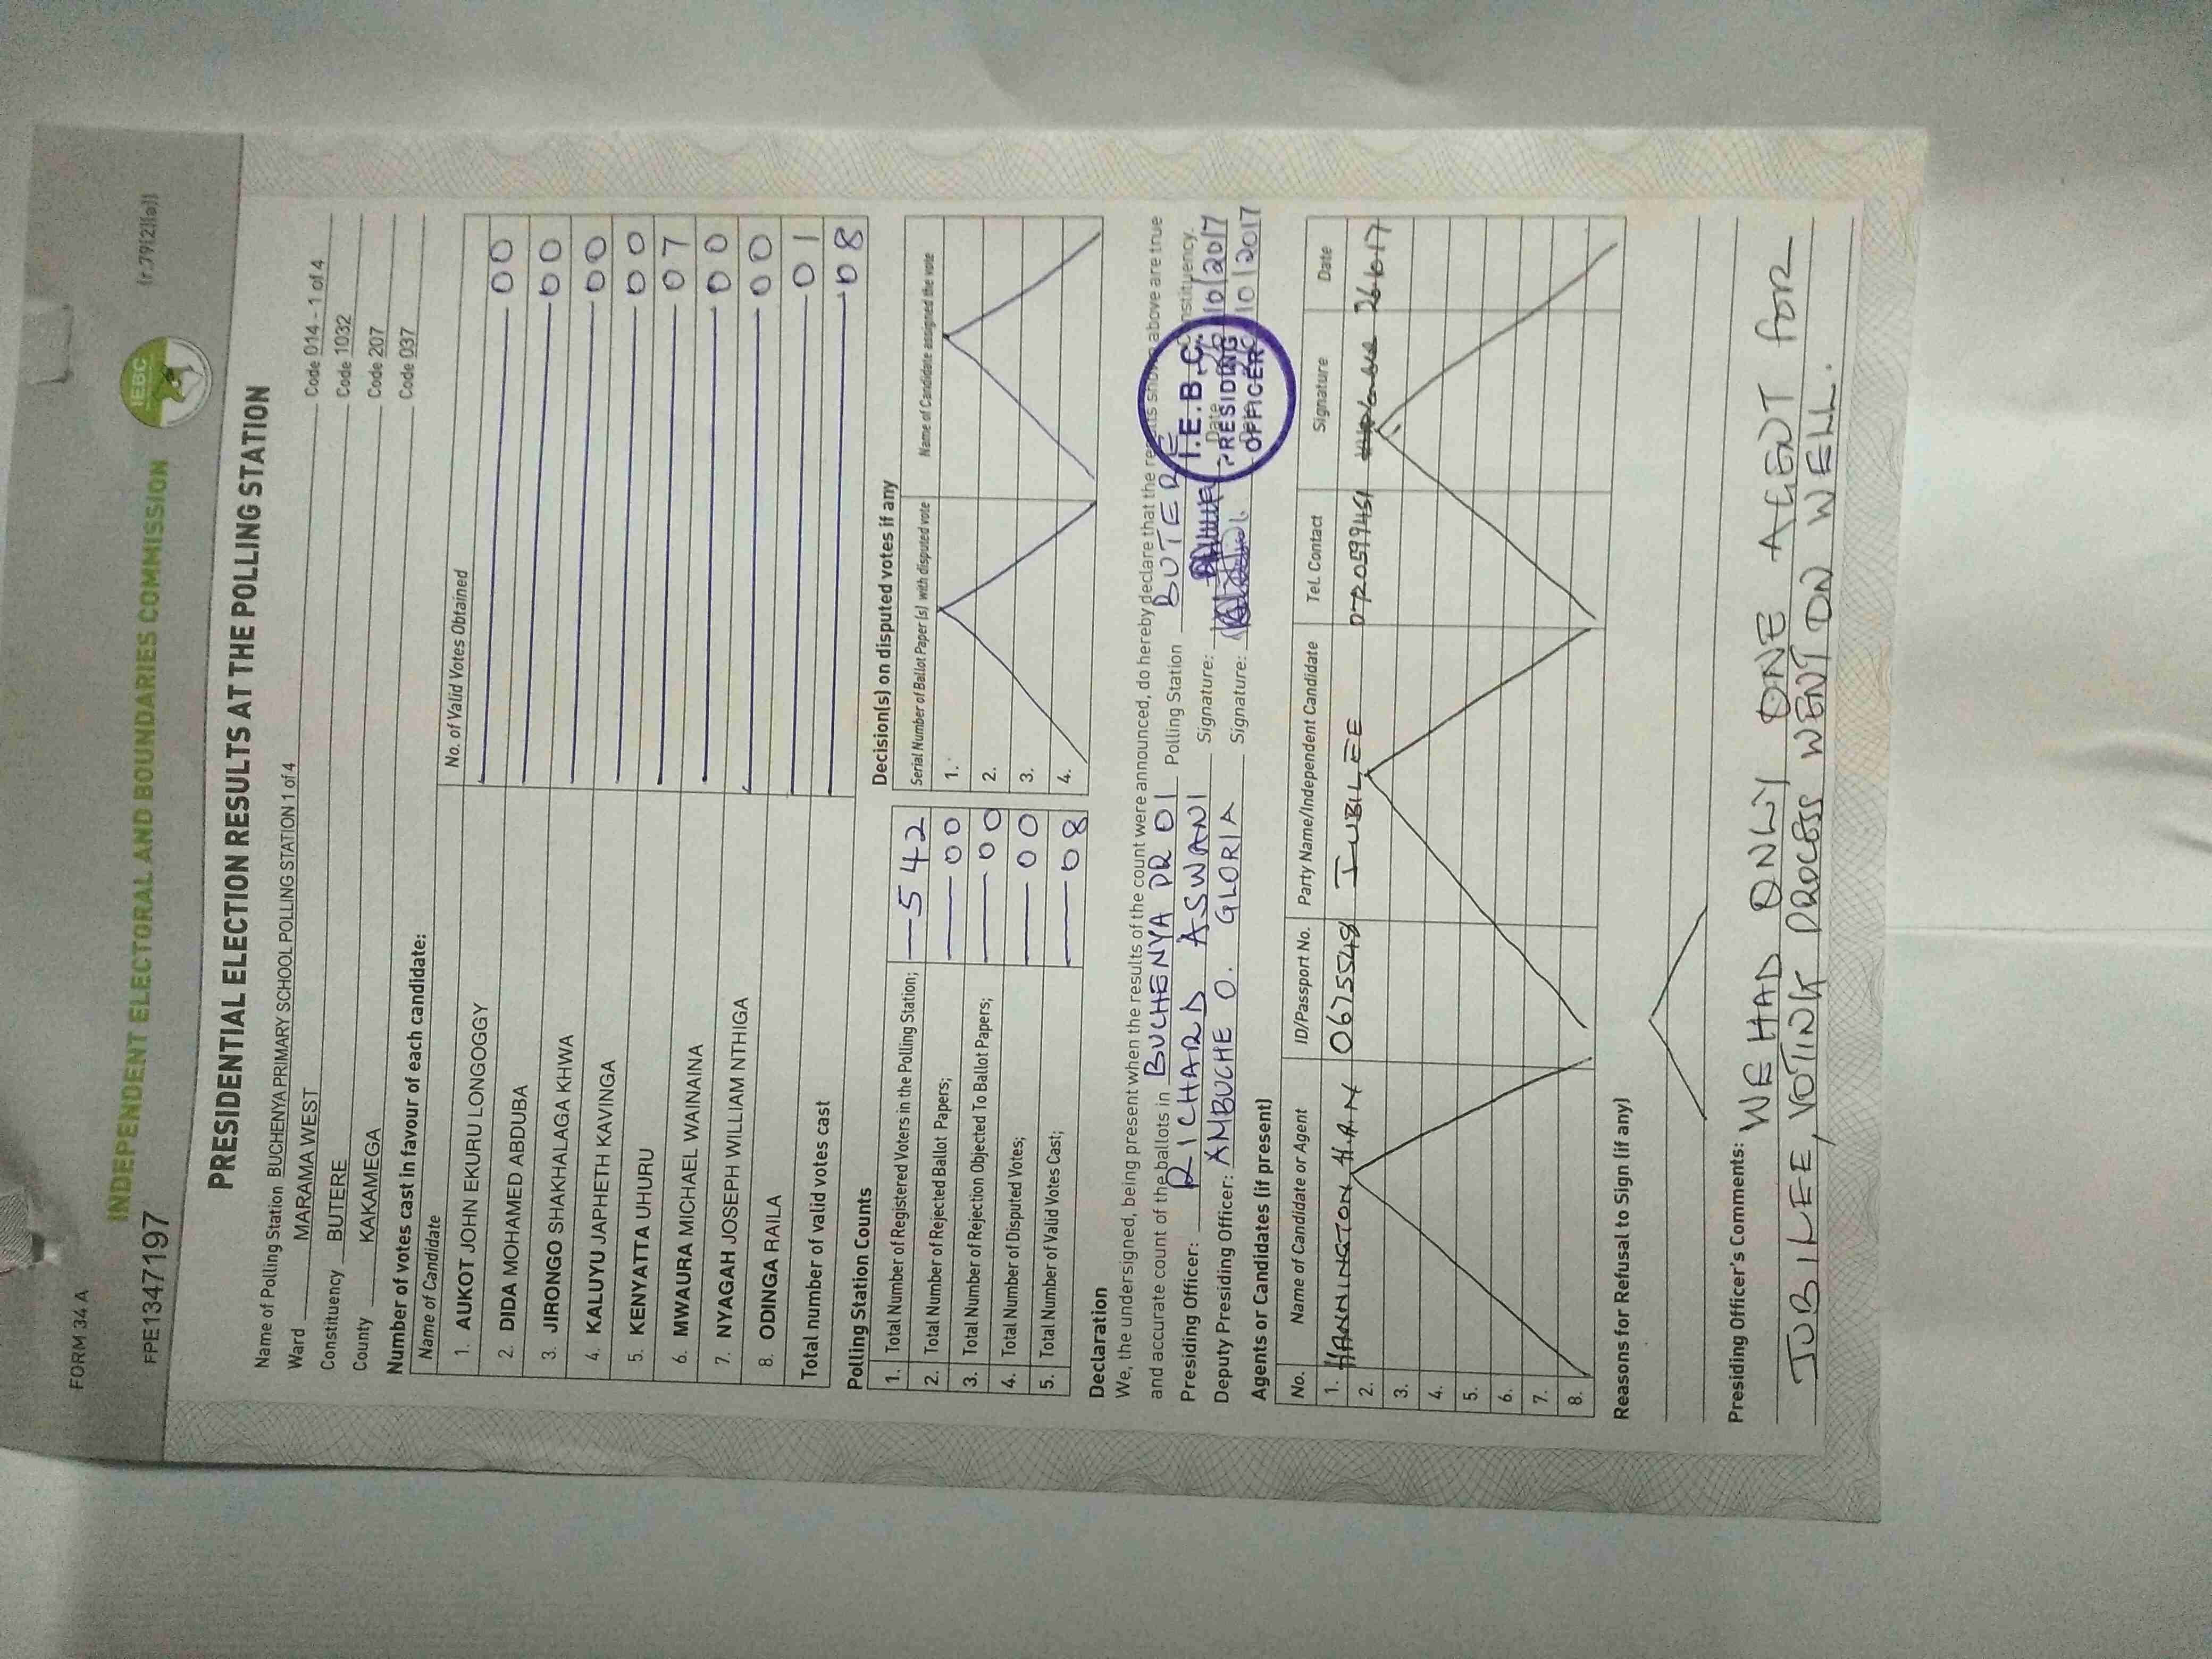 FORM 34 A
INDEPENDENT ELECTORAL AND BOUNDARIES COMMISSION
IEBC
(r.79(2)(a))
FPE1347197
PRESIDENTIAL ELECTION RESULTS AT THE POLLING STATION
Name of Polling Station BUCHENYA PRIMARY SCHOOL POLLING STATION 1 of 4 Code 014 - 1 of 4
Ward MARAMA WEST Code 1032
Constituency BUTERE Code 207
County KAKAMEGA Code 037
Number of votes cast in favour of each candidate:
Name of Candidate No. of Valid Votes Obtained
1. AUKOT JOHN EKURU LONGOGGY 00
2. DIDA MOHAMED ABDUBA 00
3. JIRONGO SHAKHALAGA KHWA 00
4. KALUYU JAPHETH KAVINGA 00
5. KENYATTA UHURU 07
6. MWAURA MICHAEL WAINAINA 00
7. NYAGAH JOSEPH WILLIAM NTHIGA 00
8. ODINGA RAILA 01
Total number of valid votes cast 08
Polling Station Counts
1. Total Number of Registered Voters in the Polling Station; 542
2. Total Number of Rejected Ballot Papers; 00
3. Total Number of Rejection Objected To Ballot Papers; 00
4. Total Number of Disputed Votes; 00
5. Total Number of Valid Votes Cast; 08
Decision(s) on disputed votes if any
Serial Number of Ballot Paper (s) with disputed vote Name of Candidate assigned the vote
1.
2.
3.
4.
Declaration
We, the undersigned, being present when the results of the count were announced, do hereby declare that the results shown above are true
and accurate count of the ballots in BUCHENYA PR 01 Polling Station BUTERE Constituency.
Presiding Officer: RICHARD ASWANI Signature: Date 10/2017
Deputy Presiding Officer: AMBUCHE O. GLORIA Signature: 10/2017
I.E.B.C.
PRESIDING
OFFICER
Agents or Candidates (if present)
No. Name of Candidate or Agent ID/Passport No. Party Name/Independent Candidate Tel. Contact Signature Date
1. HANNINGTON 0675548 JUBILEE 0720599451
2.
3.
4.
5.
6.
7.
8.
Reasons for Refusal to Sign (if any)
Presiding Officer's Comments: WE HAD ONLY ONE AGENT FOR
JUBILEE, VOTING PROCESS WENT ON WELL.